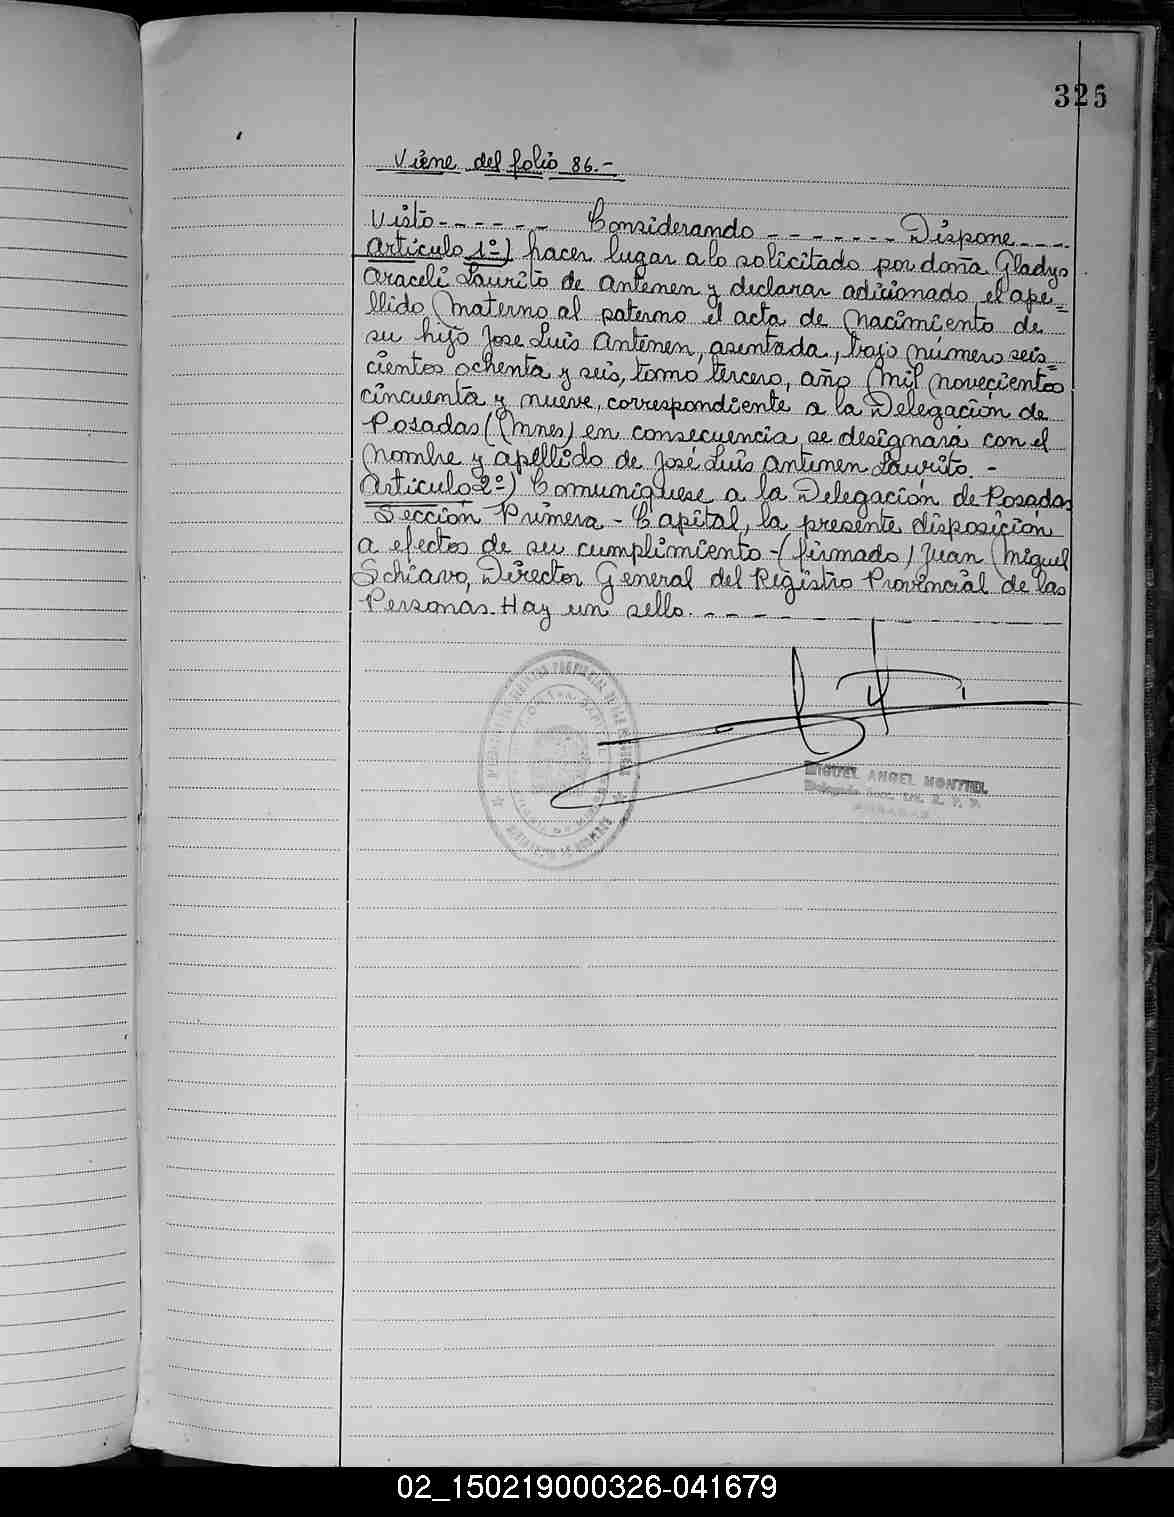 325
Viene del folio 86.-
Visto------ Considerando ------- Dispone----
Artículo 1º) hacer lugar a lo solicitado por doña Gladys
Araceli Laurito de Antenen y declarar adicionado el ape=
llido materno al paterno el acta de nacimiento de
su hijo Jose Luis Antenen, asentada, bajo número seis=
cientos ochenta y seis, tomo tercero, año mil novecientos
cincuenta y nueve, correspondiente a la Delegación de
Posadas (Mnes) en consecuencia se designará con el
nombre y apellido de José Luis Antenen Laurito.-
Artículo 2º) Comuníquese a la Delegación de Posadas
Sección Primera - Capital, la presente disposición
a efectos de su cumplimiento-(firmado) Juan Miguel
Schiavo, Director General del Registro Provincial de las
Personas. Hay un sello.----
MIGUEL ANGEL MONTIEL
02_150219000326-041679